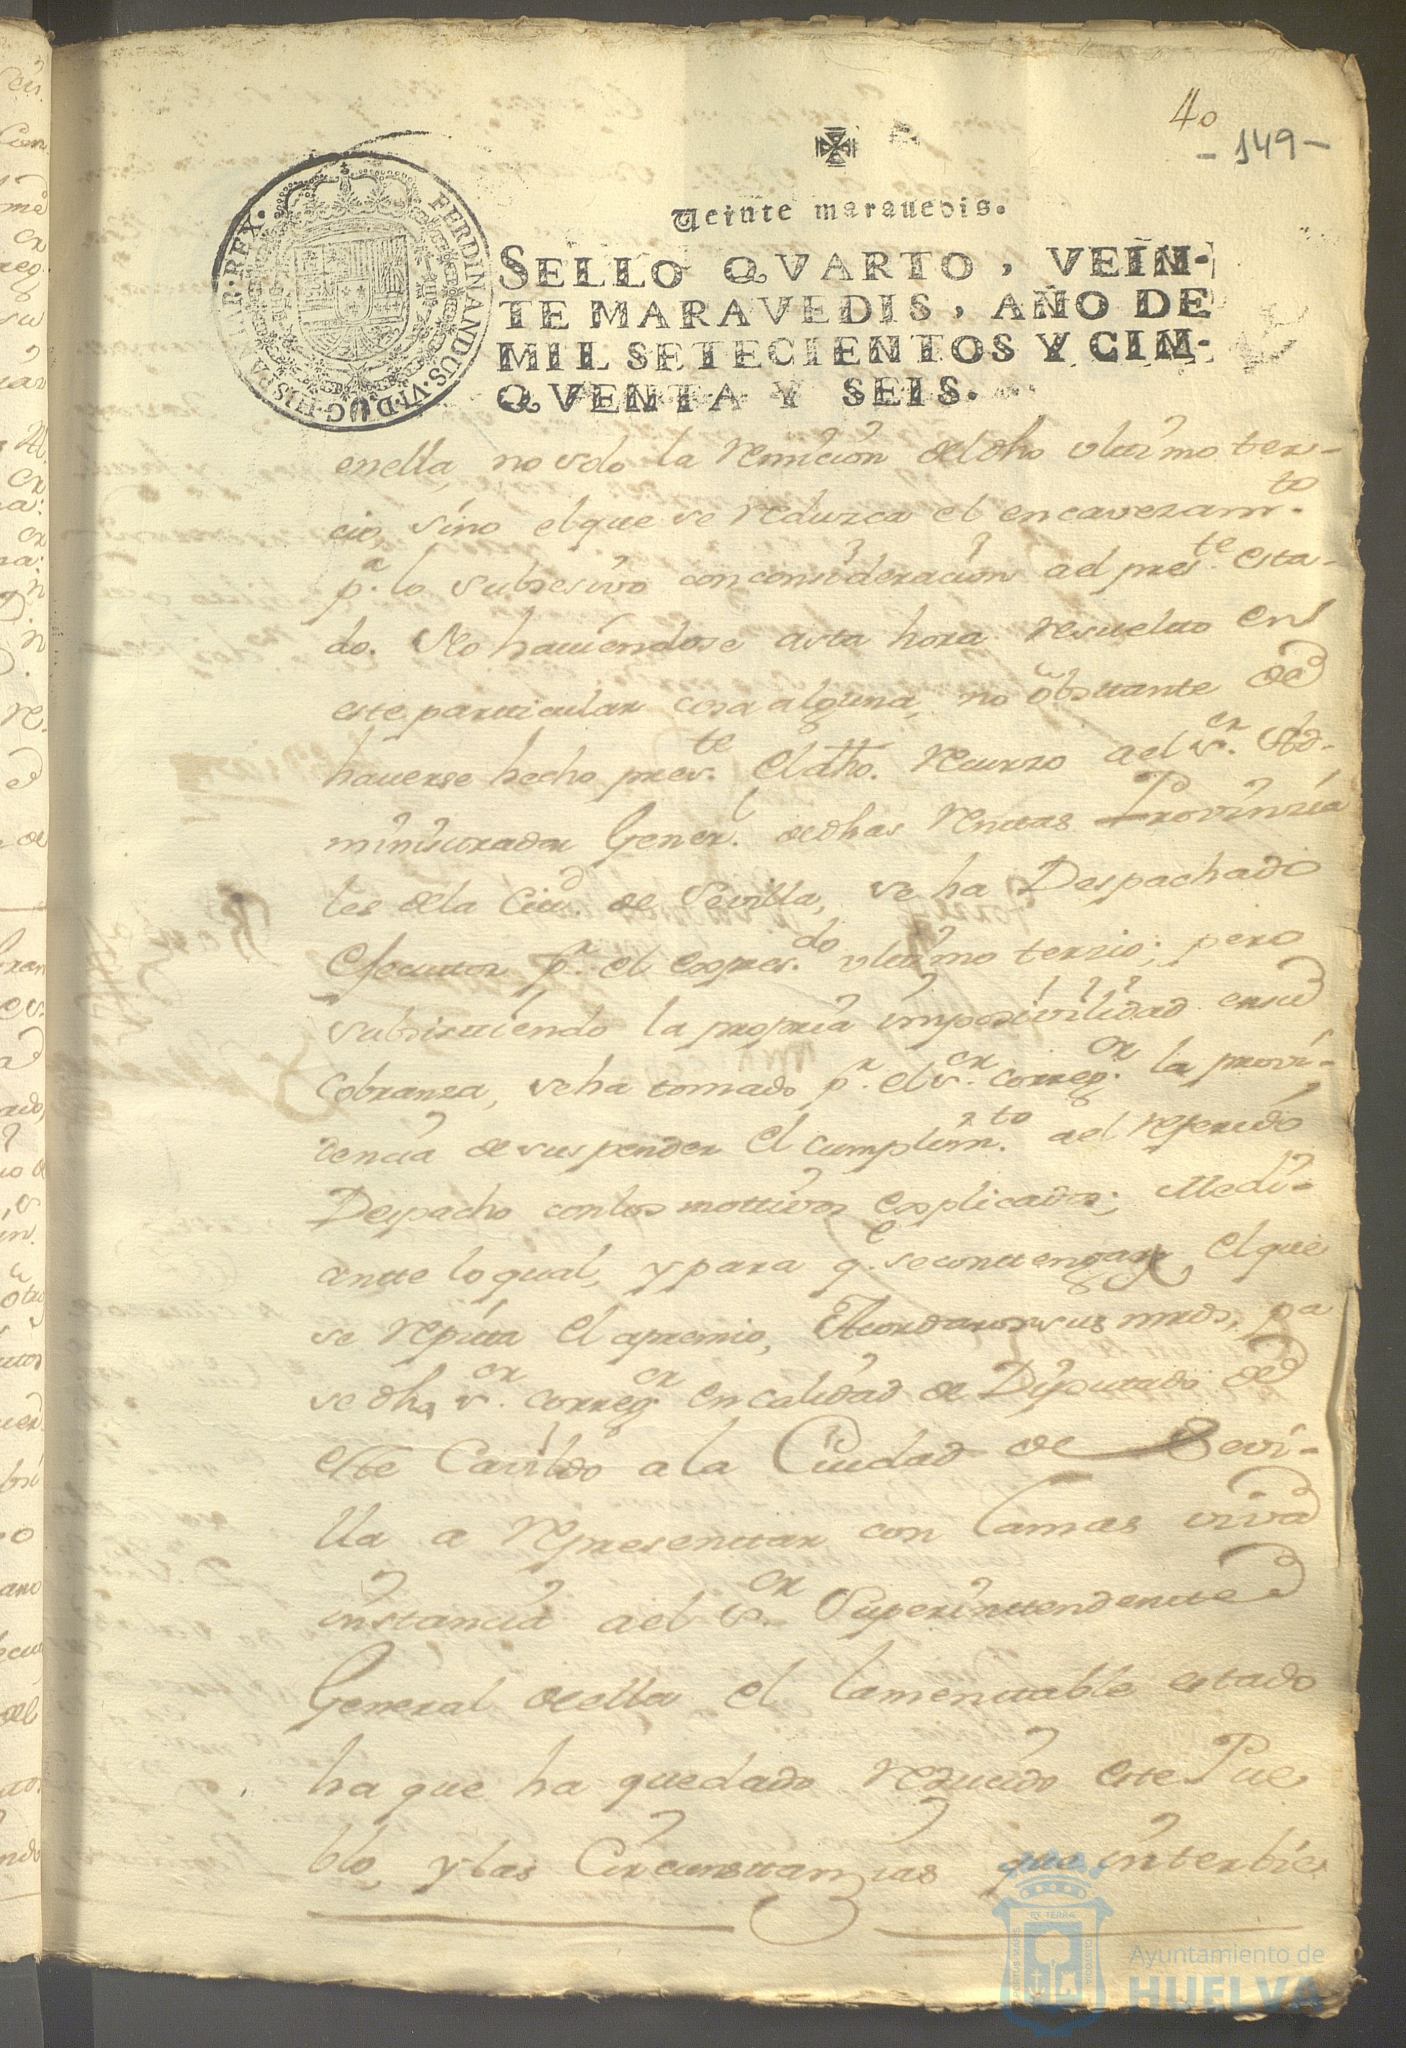 40
- 149 -
Veinte marauedis.
SELLO QVARTO, VEIN-
TE MARAVEDIS, AÑO DE
MIL SETECIENTOS Y CIN-
QVENTA Y SEIS.
FERDINANDUS·VI·D·G·HISPANIAR·REX·
enella, no solo la remicion del dho ultimo ter-
cio, sino el que se reduzca el encavezam.to
p.a lo subsesivo con concideracion ael pres.te esta-
do. No haviendose asta hora resuelto en
este particular cosa alguna, no obstante de
haverse hecho pres.te el dho. recurso ael s.or Ad-
ministrador Gener.l de dhas rentas Provinzia
les de la Ciu.d de Sevilla, se ha Despachado
Executor p.a el expres.do ultimo terzio; pero
subsistiendo la propria imposivilidad en su
cobranza, se ha tomado p.r el s.or correg.or la provi-
dencia de suspender el cumplim.to ael referido
Despacho con los mottivos explicados; Medi-
ante lo qual, y para q.e se contenga el que
se repita el apremio, Acordaron sus mrds, pa
se dho s.or correg.or en calidad de Diputado de
este Cavildo a la Ciudad de Sevi-
lla a representar con la mas viva
instancia ael s.or Superinttendente
General de ella el lamentable estado
ha que ha quedado reducido este Pue
blo, y las Circunstanzias que interbie
Ayuntamiento de
HUELVA